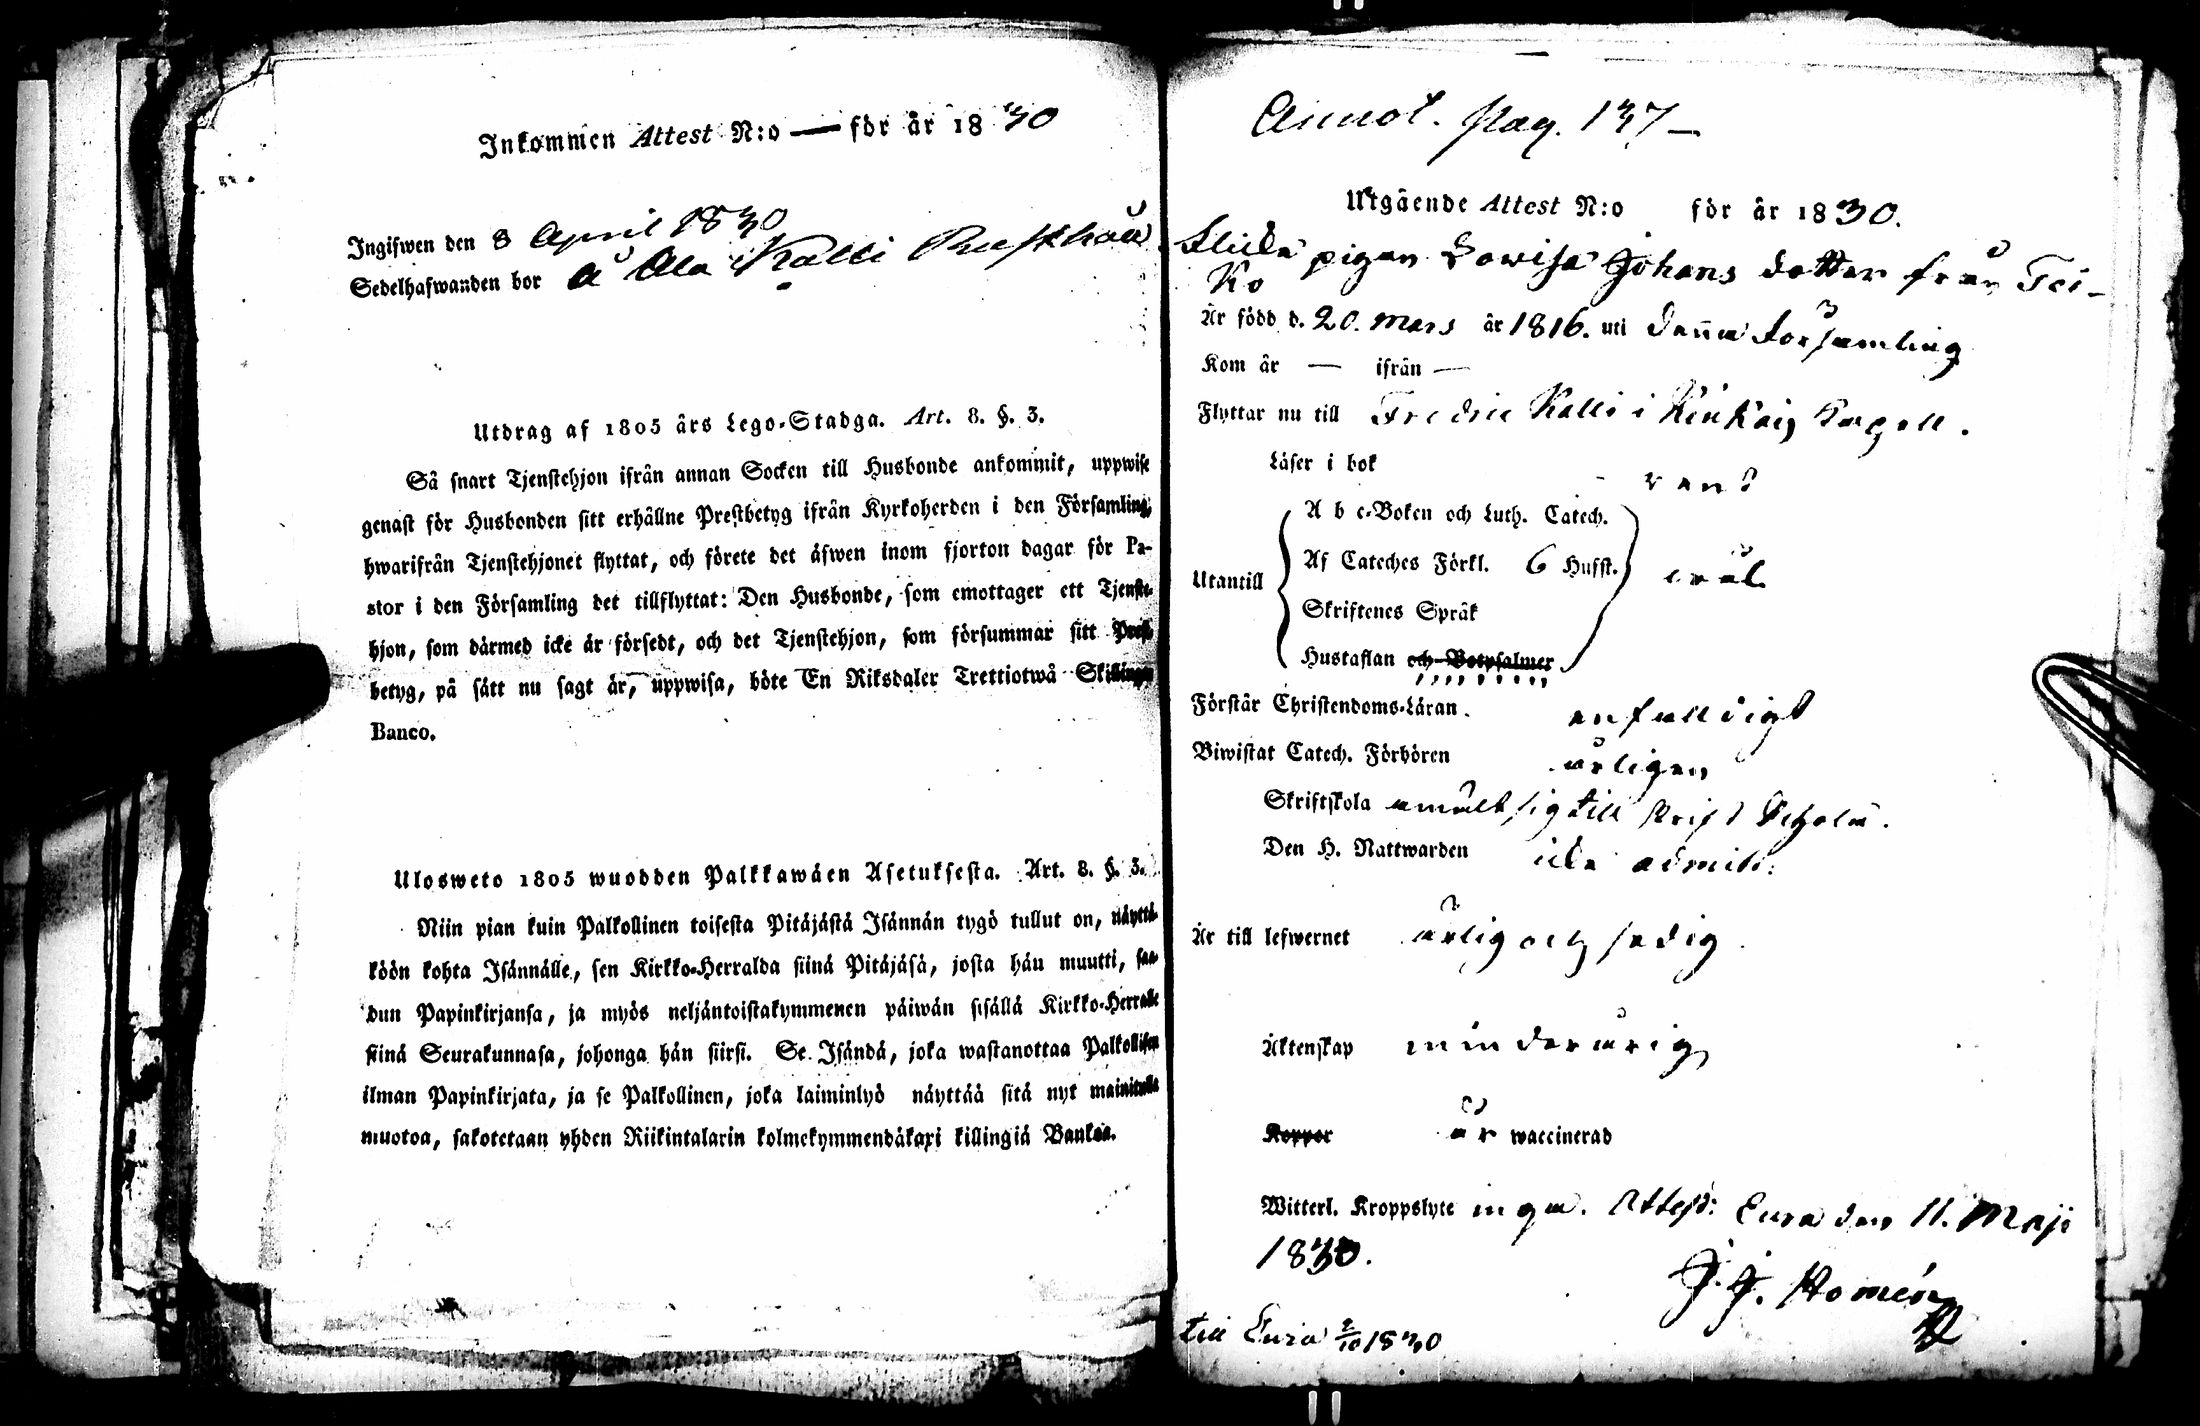 Inkommen Attest N:o — för år 1830
Ingifwen den 8 April 1830
Sedelhafwanden bor å Ala Kalli Rusthåll
Utdrag af 1805 års Lego-Stadga. Art. 8. §. 3.
Så snart Tjenstehjon ifrån annan Socken till Husbonde ankommit, uppwise
genast för Husbonden sitt erhållne Prestbetyg ifrån Kyrkoherden i den Församling,
hwarifrån Tjenstehjonet flyttat, och förete det äfwen inom fjorton dagar för Pa-
stor i den Församling det tillflyttat: Den Husbonde, som emottager ett Tjenste-
hjon, som därmed icke är försedt, och det Tjenstehjon, som försummar sitt Prest-
betyg, på sätt nu sagt är, uppwisa, böte En Riksdaler Trettiotwå Skillingar
Banco.
Ulosweto 1805 wuodden Palkkawäen Asetuksesta. Art. 8. §. 3.
Niin pian kuin Palkollinen toisesta Pitäjästä Isännän tygö tullut on, näyttä-
köön kohta Isännälle, sen Kirkko-Herralda siinä Pitäjäsä, josta hän muutti, saa-
dun Papinkirjansa, ja myös neljäntoistakymmenen päiwän sisällä Kirkko-Herralle
siinä Seurakunnasa, johonga hän siirsi. Se Isändä, joka wastanottaa Palkollisen
ilman Papinkirjata, ja se Palkollinen, joka laiminlyö näyttää sitä nyt mainitulla
muotoa, sakotetaan yhden Riikintalarin kolmekymmendäkaxi killingiä Bankoa.
Annot. pag. 137 —
Utgående Attest N:o för år 1830.
pigan Lowisa Johans dotter från Toi-
ko
Är född d. 20. Mars år 1816. uti denna Församling
Kom år — ifrån —
Flyttar nu till Fredric Kalli i Kiukais Capell.
Läser i bok rent
A b c-Boken och Luth. Catech.
Utantill Af Cateches Förkl. 6 Hufst.
Skriftenes Språk
Hustaflan och Botpsalmer
Förstår Christendoms-Läran. enfaldigt
Biwistat Catech. Förhören årligen
Skriftskola anmält sig till Skrift Schola.
Den H. Nattwarden icke admitt:
Är till lefwernet ärlig och sedig.
Äktenskap minderårig
Koppor är waccinerad
Witterl. Kroppslyte inga. Attest: Eura den 11. Maji
1830.
J. J. Homén
till Eura 2/10 1830